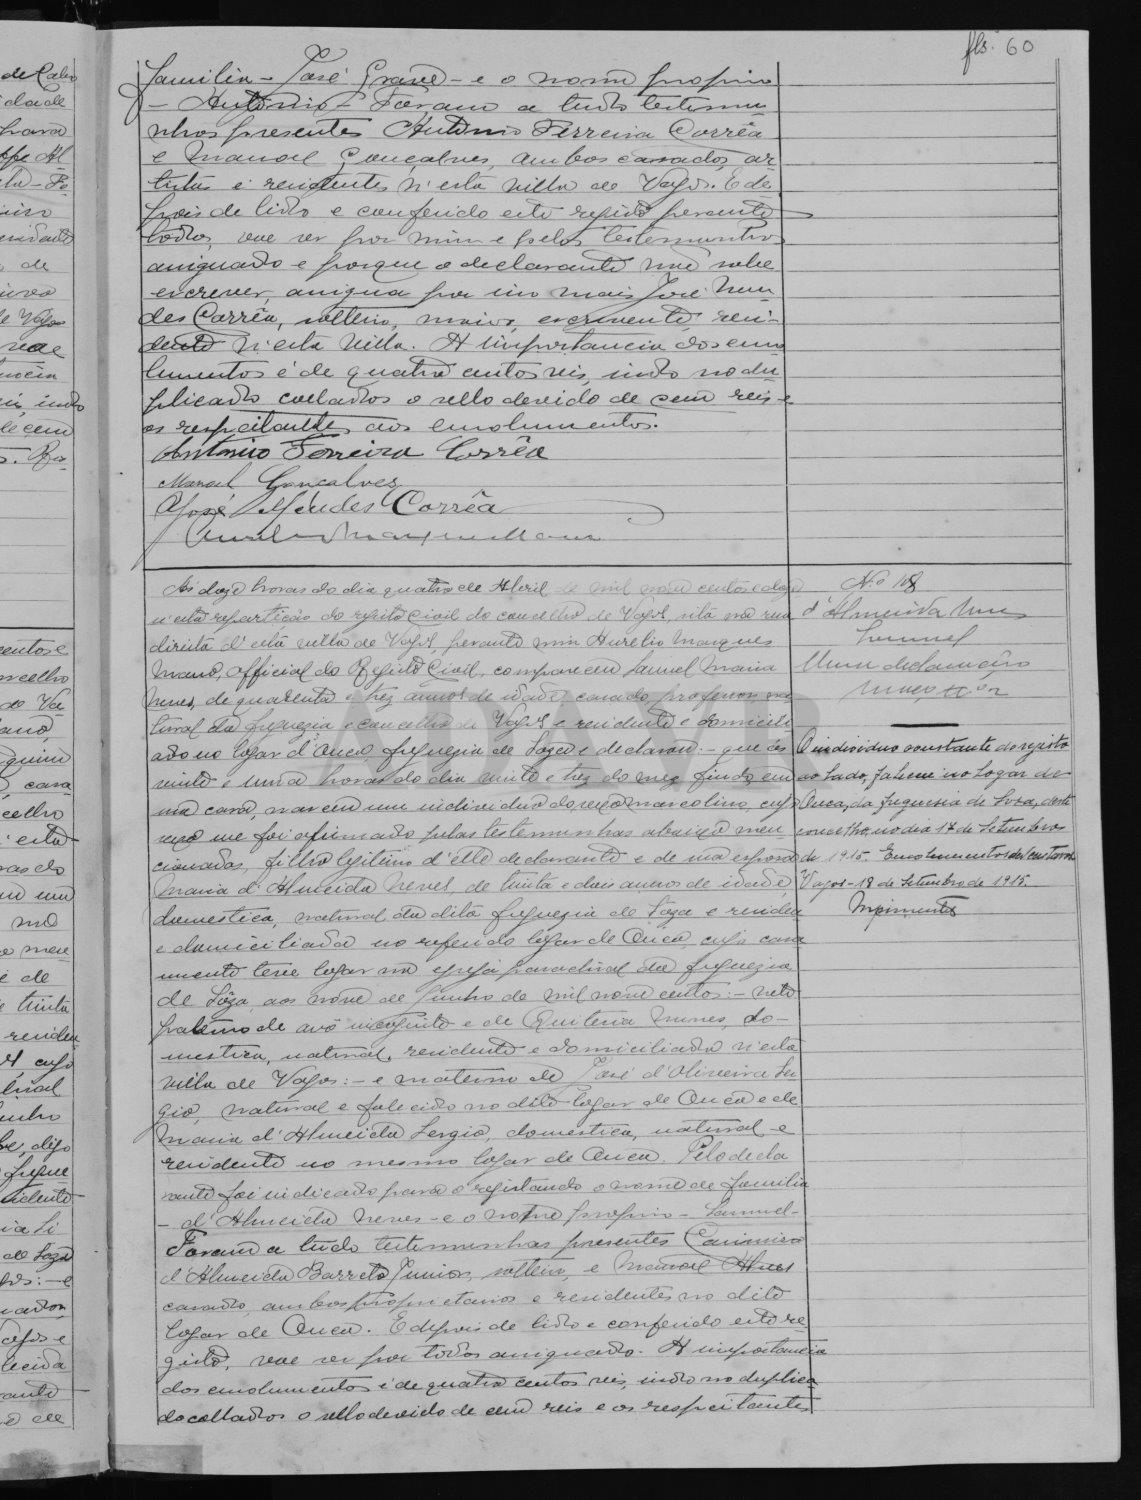 fls. 60
familia - José Grave - e o nome proprio
- Antonio - Foram a tudo testemu
nhas presentes Antonio Ferreira Corrêa
e Manoel Gonçalves, ambos casados, ar
tistas e residentes n'esta villa de Vagos. E de
pois de lido e conferido este registo perante
todos, vae ser por mim e pelas testemunhas
assignado e porque o declarante não sabe
escrever, assigna por isso mais José Men
des Corrêa, solteiro, maior, escrevente, resi-
dente n'esta villa. A importancia dos emo
lumentos é de quatro centos reis, indo no du-
plicado collados o sello devido de cem reis e
os respeitantes aos emolumentos.
Antonio Ferreira Corrêa
Manoel Gonçalves
José Mendes Corrêa
Aurelio Marques Mano
Ás doze horas do dia quatro de Abril de mil nove centos e doze
n'esta repartição do registo civil do concelho de Vagos, sita na rua
direita d'esta villa de Vagos, perante mim Aurelio Marques
Mano, official do Registo Civil, compareceu Samuel Maria
Neves, de quarenta e trez annos de idade, casado, professor, na
tural da freguezia e concelho de Vagos e residente e domicili
ado no logar d'Ouca, freguezia de Soza e declarou: - que ás
vinte e uma horas do dia vinte e trez do mez findo, em
sua casa, nasceu um individuo do sexo masculino, cujo
sexo me foi afirmado pelas testemunhas abaixo men
cionadas, filho legitimo d'elle declarante e de sua esposa
Maria d'Almeida Neves, de trinta e dois annos de idade,
domestica, natural da dita freguezia de Soza e residen
e domiciliada no referido logar de Ouca, cujo casa
mento teve logar na egreja parochial da freguezia
de Sôza, aos nove de Junho de mil nove centos: - neto
paterno de avô incognito e de Quiteria Nunes, do-
mestica, natural, residente e domiciliada n'esta
villa de Vagos: - e materno de José d'Oliveira Ser
gio, natural e falecido no dito logar de Ouca e de
Maria d'Almeida Sergio, domestica, natural e
residente no mesmo logar de Ouca. Pelo decla
rante foi indicado para o registando o nome de familia
- d'Almeida Neves - e o nome proprio - Samuel -
Foram a tudo testemunhas presentes Casimiro
d'Almeida Barreto Junior, solteiro, e Manoel Alves
casado, ambos proprietarios e residentes no dito
logar de Ouca. E depois de lido e conferido este re
gisto, vae ser por todos assignado. A importancia
dos emolumentos é de quatro centos reis, indo no duplica
do collados o sello devido de cem reis e os respeitantes
N.º 118
d'Almeida Neves
Samuel
Uma declaração
O individuo constante do registo
ao lado, faleceu no logar de
Ouca, da freguesia de Soza, deste
concelho, no dia 17 de Setembro
de 1915. Emolumentos dez centavos.
Vagos - 18 de Setembro de 1915.